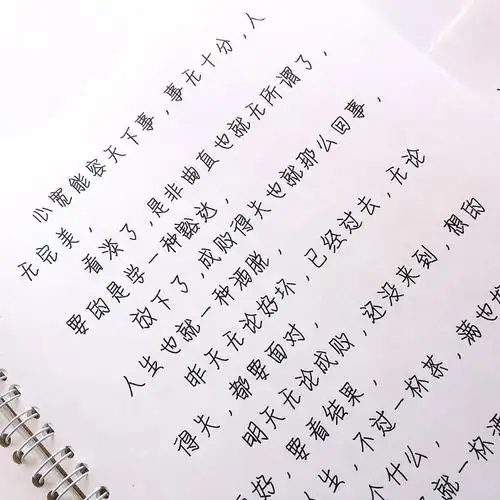 心宽能容天下事，事无十分，人
无完美，
看淡了，是非曲直也就无所谓了，
要的是学一种豁达，
放下了，成败得失也就那么回事，
人生也就一种洒脱，
昨天无论好坏，已经过去，无论
得失，都要面对，
明天无论成败，还没来到，想的
再好，要看结果，
人生，不过一杯茶，满也
个什么，
就一杯酒